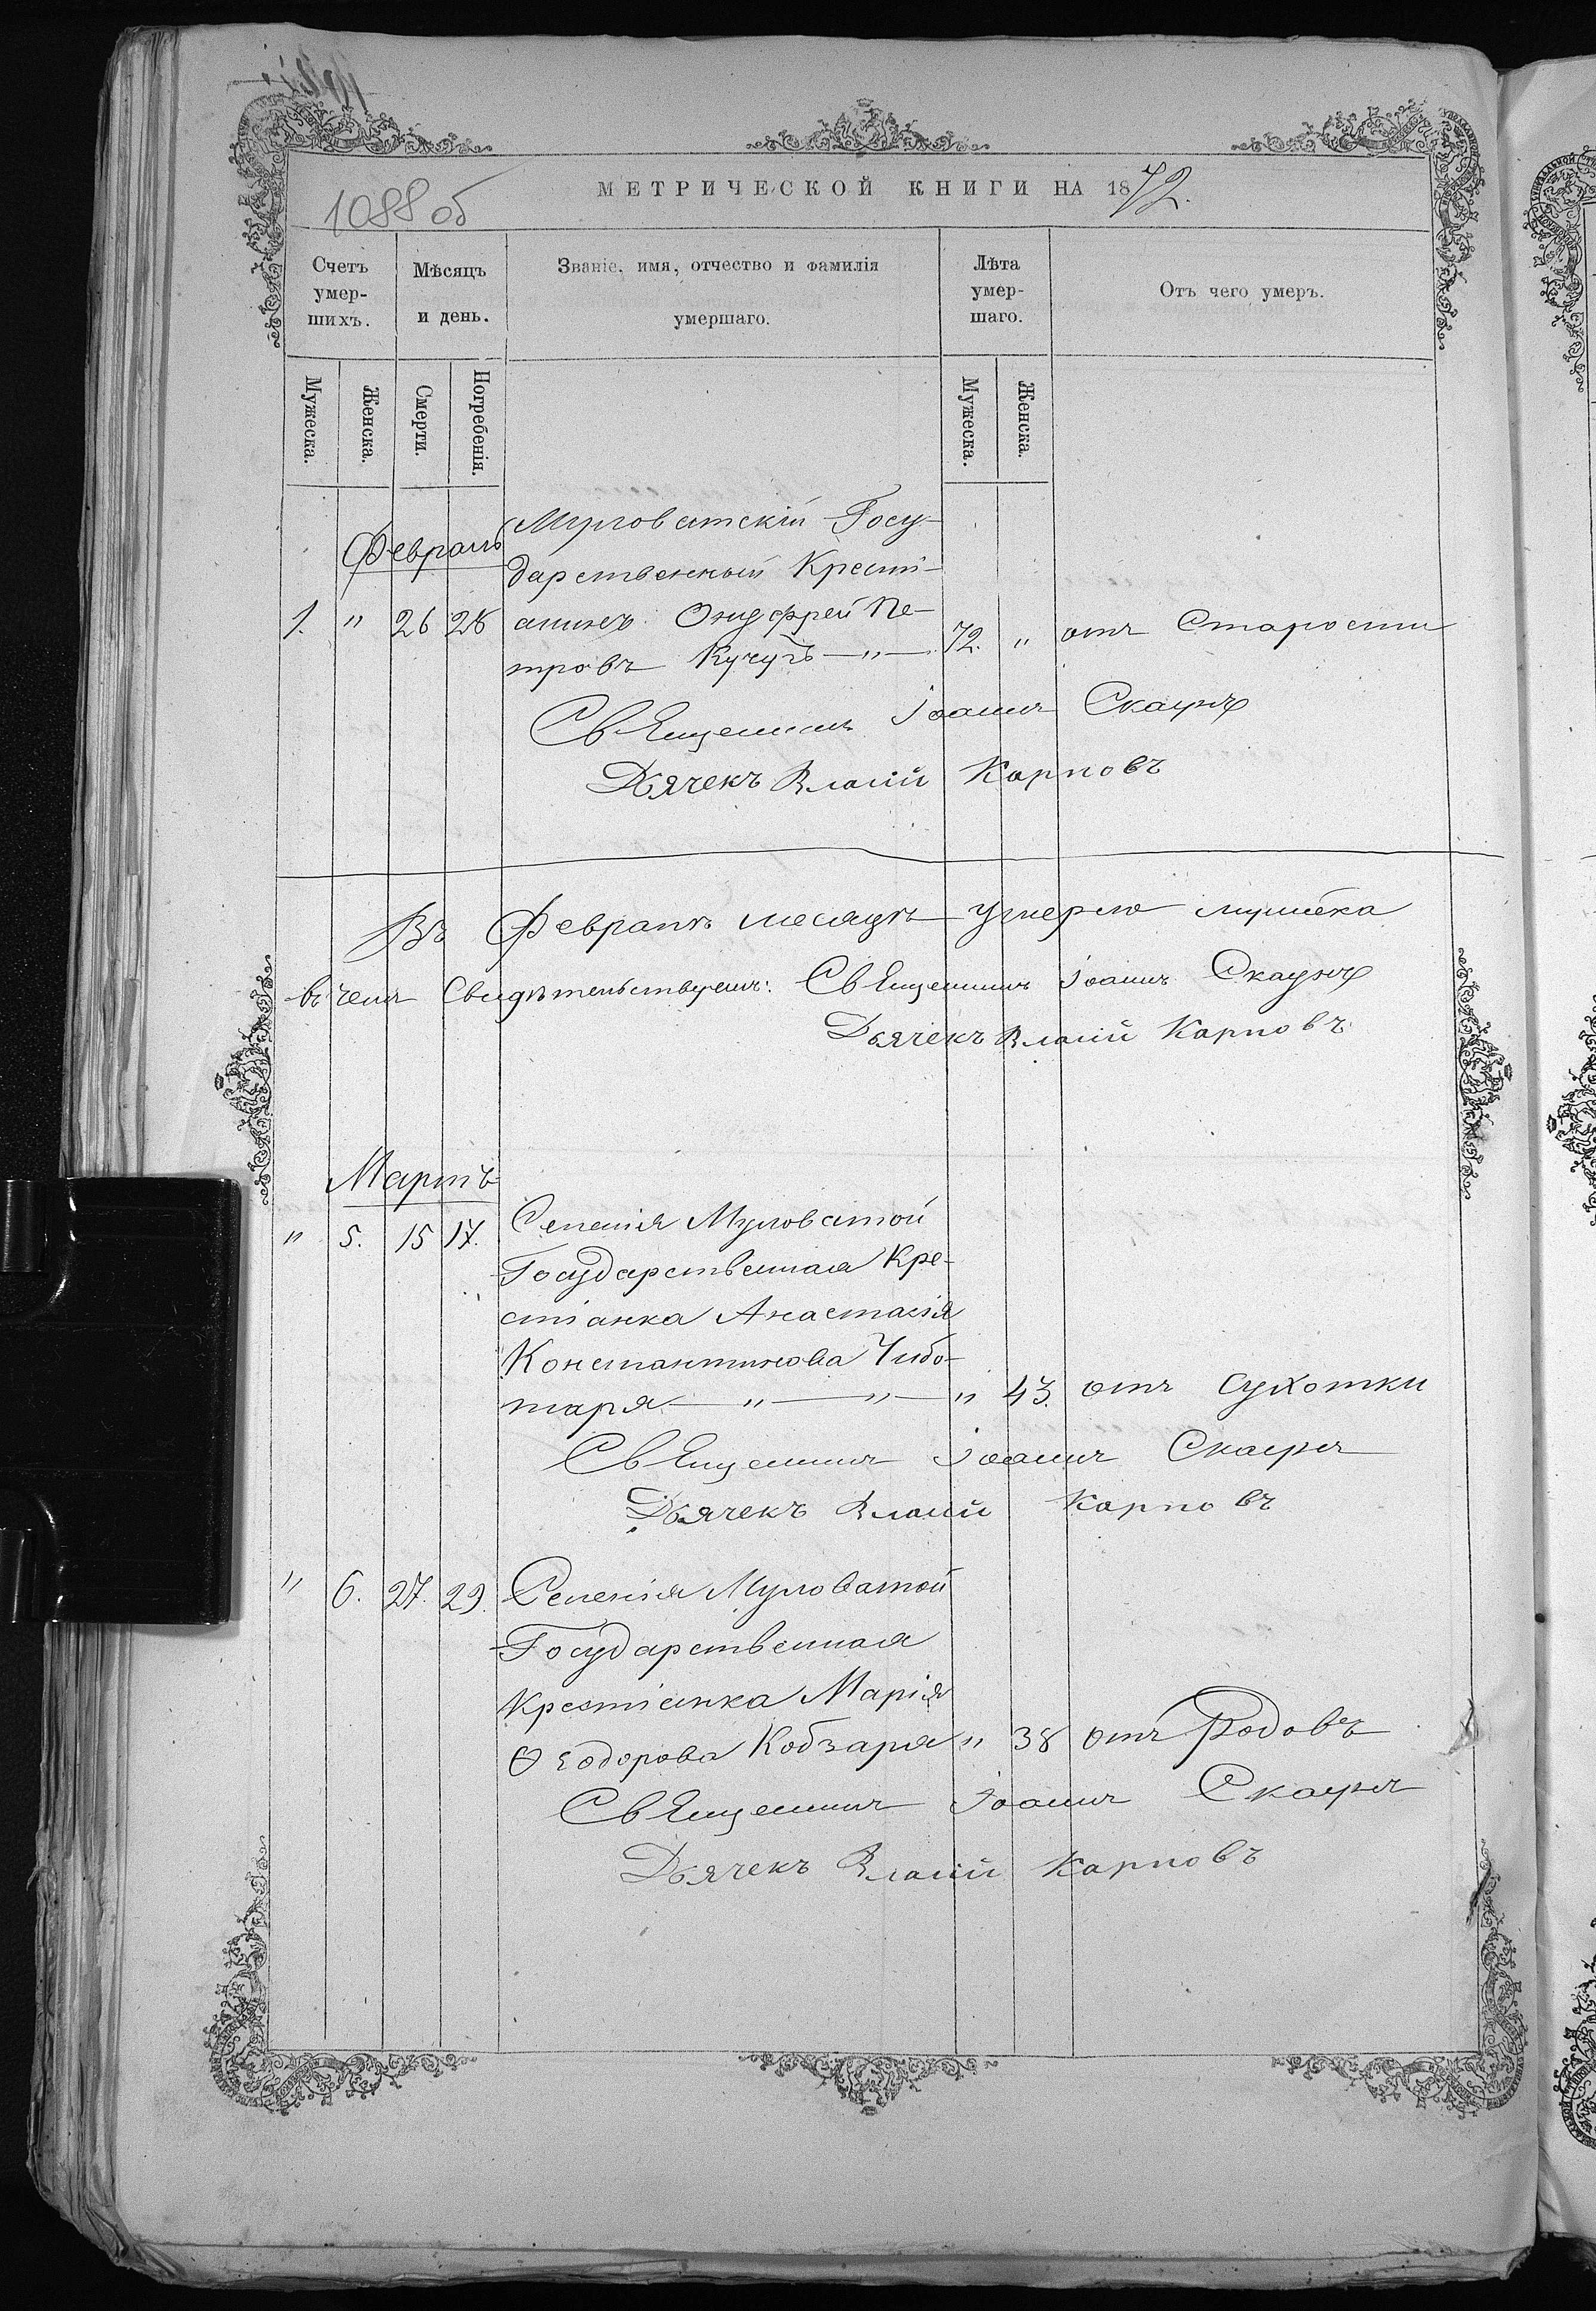 1088 об
МЕТРИЧЕСКОЙ КНИГИ НА 1872.
Счетъ умер-шихъ.
Мѣсяцъ и день.
Званіе, имя, отчество и фамилія умершаго.
Лѣта умер-шаго.
Отъ чего умеръ.
Мужеска.
Женска.
Смерти.
Погребенія.
Мужеска.
Женска.
Февраль
Муловатскій Госу-
дарственный Кресті-
1. " 26 28 анинъ Онуфрей Пе-
тровъ Кучукъ — " — 72. " отъ Старости
Священникъ Іоаннъ Скаунъ
Дьячекъ Власій Карповъ
Въ Февралѣ месяцѣ умерло мужеска
въ чемъ Свидѣтельствуемъ: Священникъ Іоаннъ Скаунъ
Дьячекъ Власій Карповъ
Мартъ
" 5. 15 17. Селенія Муловатой
Государственная Кре-
стіанка Анастасія
Константинова Чебо-
таря — " — " — " 43. отъ сухотки
Священникъ Іоаннъ Скаунъ
Дьячекъ Власій Карповъ
" 6. 27. 29. Селенія Муловатой
Государственная
Крестіанка Марія
Ѳеодорова Кобзаря " 38 отъ Родовъ
Священникъ Іоаннъ Скаунъ
Дьячекъ Власій Карповъ